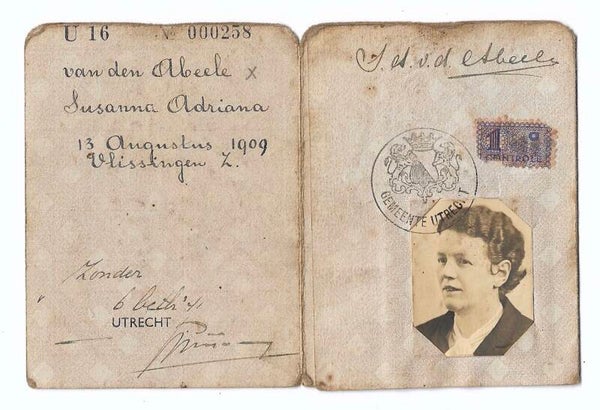 U 16 № 000258
van den Abeele x
Susanna Adriana
13 Augustus 1909
Vlissingen Z.
Zonder
UTRECHT
S. A. v. d. Abeele
1
CONTROLE
GEMEENTE UTRECHT